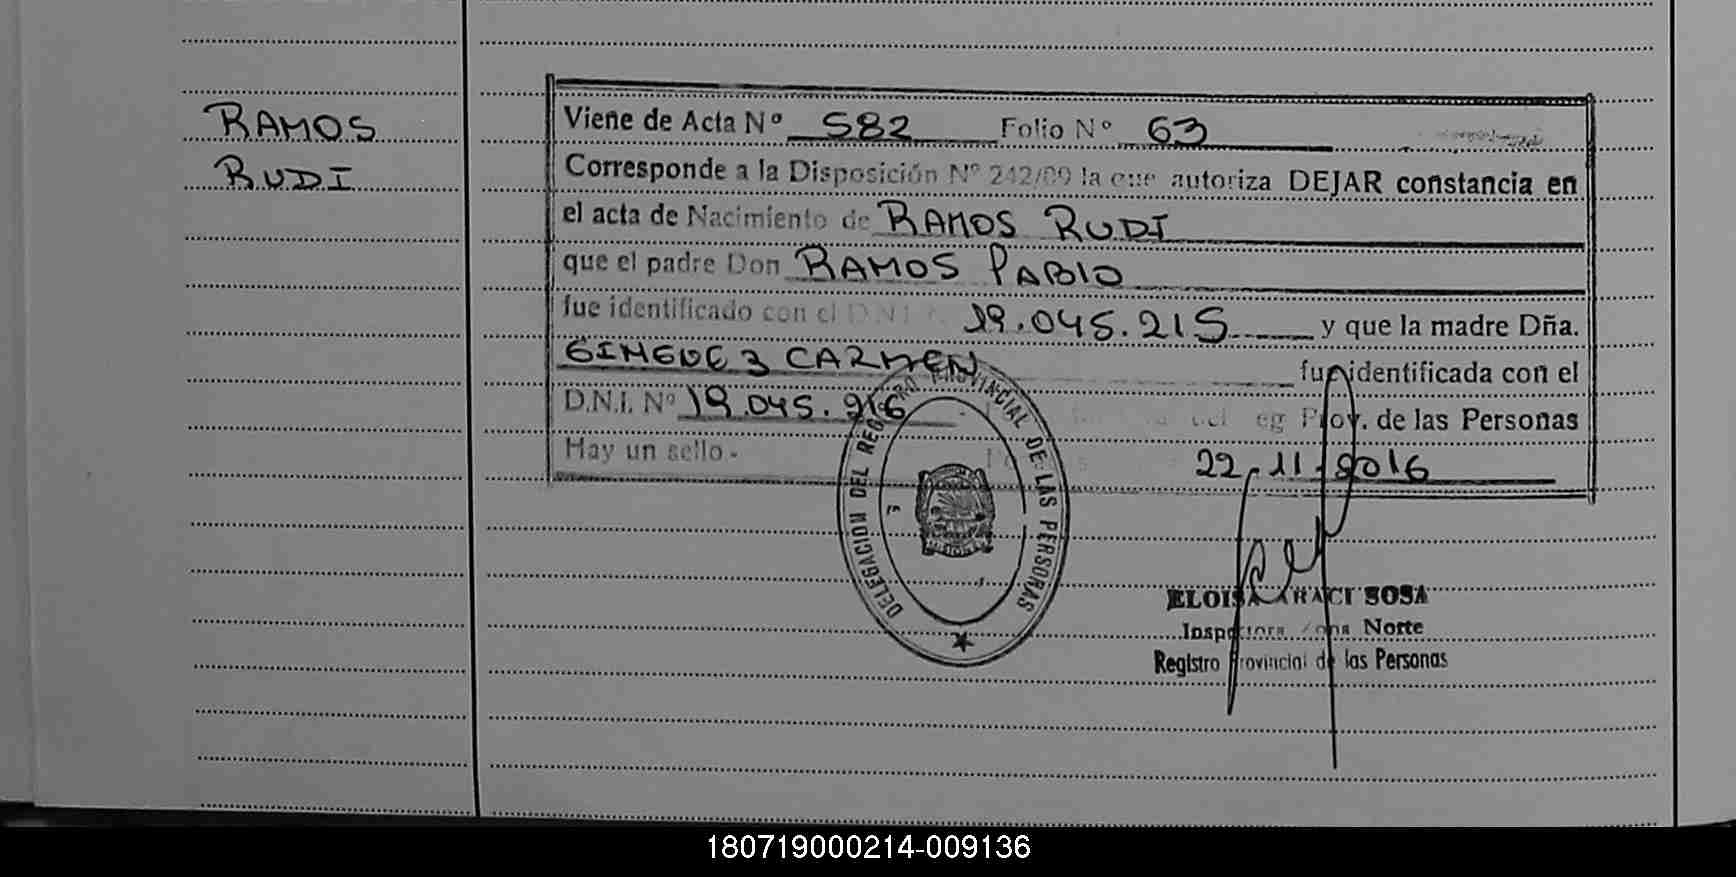 RAMOS
RUDI
Viene de Acta Nº 582 Folio Nº 63
Corresponde a la Disposición Nº 242/09 la que autoriza DEJAR constancia en
el acta de Nacimiento de RAMOS RUDI
que el padre Don RAMOS PABLO
fue identificado con el D.N.I. 19.045.215 y que la madre Dña.
GIMGUEZ CARMEN fue identificada con el
D.N.I. Nº 19.045.216 del Reg Prov. de las Personas
Hay un sello.- 22-11-2016
DELEGACION DEL REGISTRO PROVINCIAL DE LAS PERSONAS
ELOISA ARACI SOSA
Inspectora Zona Norte
Registro Provincial de las Personas
180719000214-009136